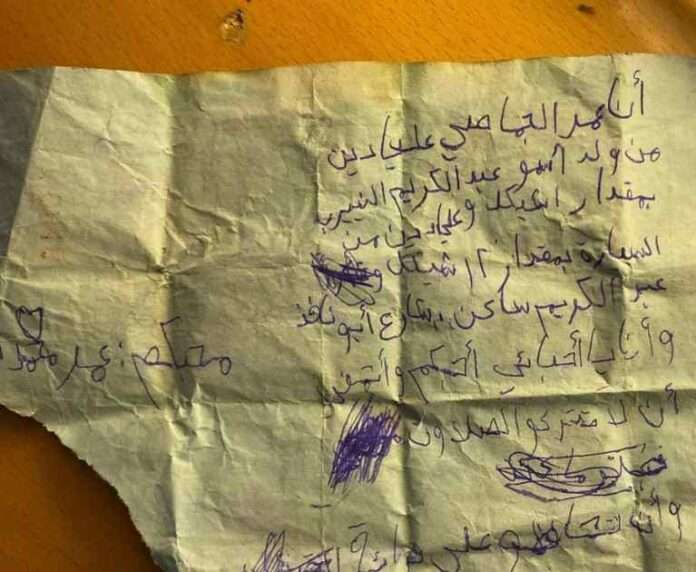 أنا عمر الجماصي عليا دين
من ولد اسمو عبد الكريم النيرب
بمقدار 1 شيكل وعليا دين من
السيارة بمقدار 2 شيكل
عبد الكريم ساكن شارع أبو نافذ
وأنا يا أحبائي أحبكم وأتمنى
أن لا تتركو الصلاة
وأن تحافظو على
محبكم: عمر محمد